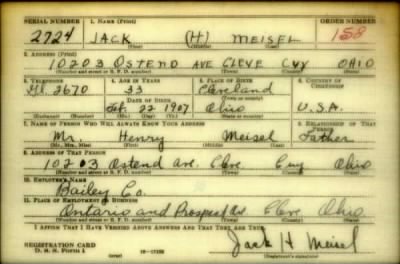 SERIAL NUMBER 1. NAME (Print) ORDER NUMBER
2724 JACK (H) MEISEL 158
(First) (Middle) (Last)
2. ADDRESS (Print)
10203 OSTEND AVE CLEVE CUY OHIO
(Number and street or R. F. D. number) (Town) (County) (State)
3. TELEPHONE 4. AGE IN YEARS 5. PLACE OF BIRTH 6. COUNTRY OF CITIZENSHIP
3670 33 Cleveland
DATE OF BIRTH (Town or county)
22 1907 Ohio U.S.A.
(Exchange) (Number) (Mo.) (Day) (Yr.) (State or country)
7. NAME OF PERSON WHO WILL ALWAYS KNOW YOUR ADDRESS RELATIONSHIP OF THAT PERSON
Mr. Henry Meisel Father
(Mr., Mrs., Miss) (First) (Middle) (Last)
8. ADDRESS OF THAT PERSON
10203 Ostend Ave. Cleve Cuy Ohio
(Number and street or R. F. D. number) (Town) (County) (State)
10. EMPLOYER'S NAME
Bailey Co.
11. PLACE OF EMPLOYMENT OR BUSINESS
Ontario and Prospect Av Cleve Ohio
(Number and street or R. F. D. number) (Town) (County) (State)
I AFFIRM THAT I HAVE VERIFIED ABOVE ANSWERS AND THAT THEY ARE TRUE.
REGISTRATION CARD
D. S. S. FORM 1 Jack H Meisel
(Registrant's signature)